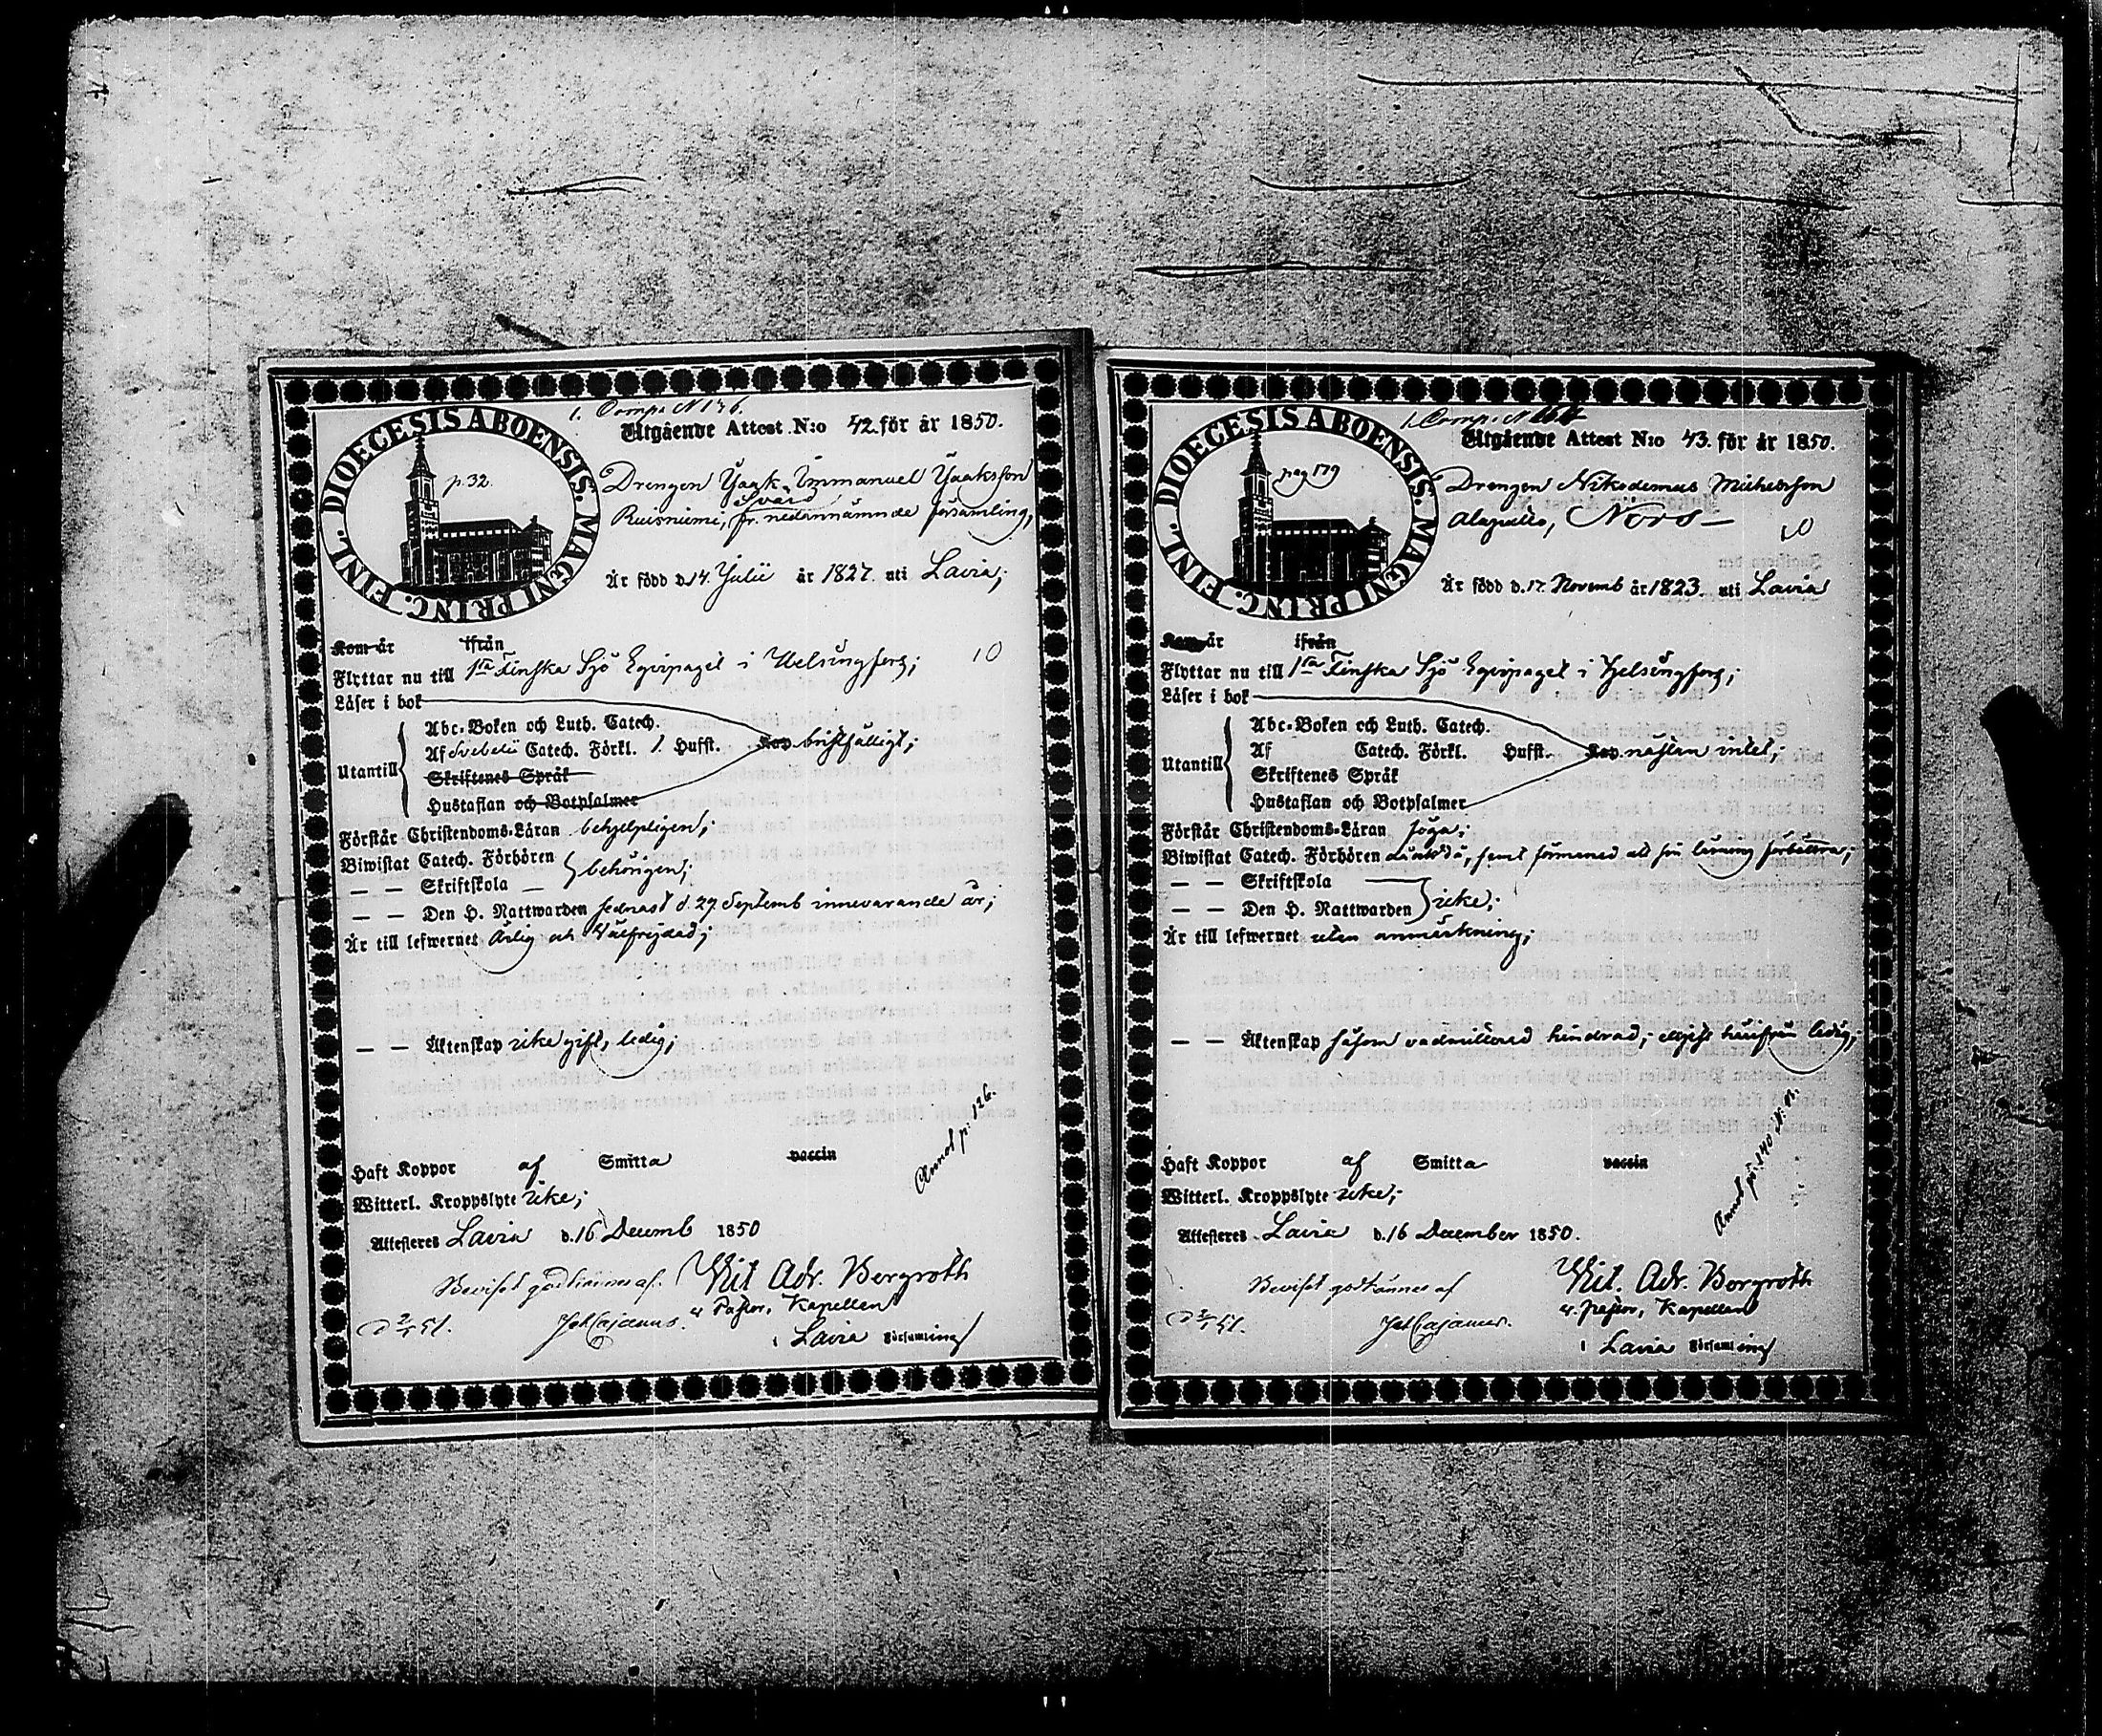 1. Comp. N 176.
DIOECESIS ABOENSIS. MAGNI PRINC. FINL.
p. 32.
Utgående Attest N:o 42. för år 1850.
Drengen Isaak Immanuel Isaaksson
Svärd
Ruisniemi, fr. nedannämnde församling,
Är född d. 14. Julii år 1827. uti Lavia;
Kom år ifrån
Flyttar nu till 1sta Finska Sjö Equipaget i Helsingfors; 10
Läser i bok
Utantill
Abc-Boken och Luth. Catech.
Af Svebelii Catech. Förkl. 1. Hufst. Kap bristfälligt;
Skriftenes Språk
Hustaflan och Botpsalmer
Förstår Christendoms-Läran behjelpligen;
Biwistat Catech. Förhören
— — Skriftskola — behörigen;
— — Den H. Nattwarden sednast d. 29 Septemb innevarande år;
Är till lefwernet Ärlig och Välfrejdad;
— — Äktenskap icke gift, ledig;
Annot p. 126.
Haft Koppor af Smitta vaccin
Witterl. Kroppslyte icke;
Attesteres Lavia d. 16 Decemb 1850
Beviset godkännes af. Vict Adr. Bergroth
v. Pastor, Kapellan
d 2/1 51. Joh Cajanus.
i Lavia Församling
1. Comp. N
DIOECESIS ABOENSIS. MAGNI PRINC. FINL.
pag 179
Utgående Attest N:o 43. för år 1850.
Drengen Nikodemus Michelsson
Alapullis, Nors — 10
Är född d. 17. Novemb år 1823. uti Lavia
Kom år ifrån
Flyttar nu till 1sta Finska Sjö Equipaget i Helsingfors;
Läser i bok
Utantill
Abc-Boken och Luth. Catech.
Af Catech. Förkl. Hufst. Kap. nästan intet;
Skriftenes Språk
Hustaflan och Botpsalmer
Förstår Christendoms-Läran föga;
Biwistat Catech. Förhören samt förmanad att sin läsning förbättra;
— — Skriftskola
— — Den H. Nattwarden icke;
Är till lefwernet utan anmärkning;
— — Äktenskap såsom oadmitterad hindrad; eljest härifrån ledig;
Annot p. 140
Haft Koppor af Smitta vaccin
Witterl. Kroppslyte icke;
Attesteres Lavia d. 16 December 1850.
Beviset godkännes af Vict. Adr. Bergroth
v. Pastor, Kapellan
d 2/1 51. Joh Cajanus.
i Lavia Församling